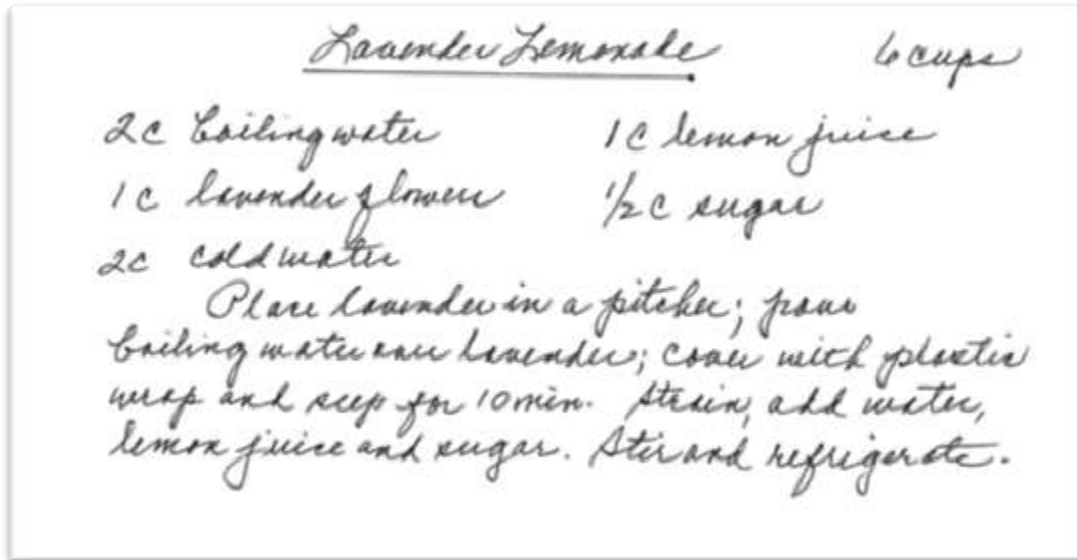 Lavender Lemonade 6 cups
2c boiling water 1c lemon juice
1c lavender flowers 1/2c sugar
2c cold water
Place lavender in a pitcher; pour
boiling water over lavender; cover with plastic
wrap and seep for 10 min. Strain, add water,
lemon juice and sugar. Stir and refrigerate.